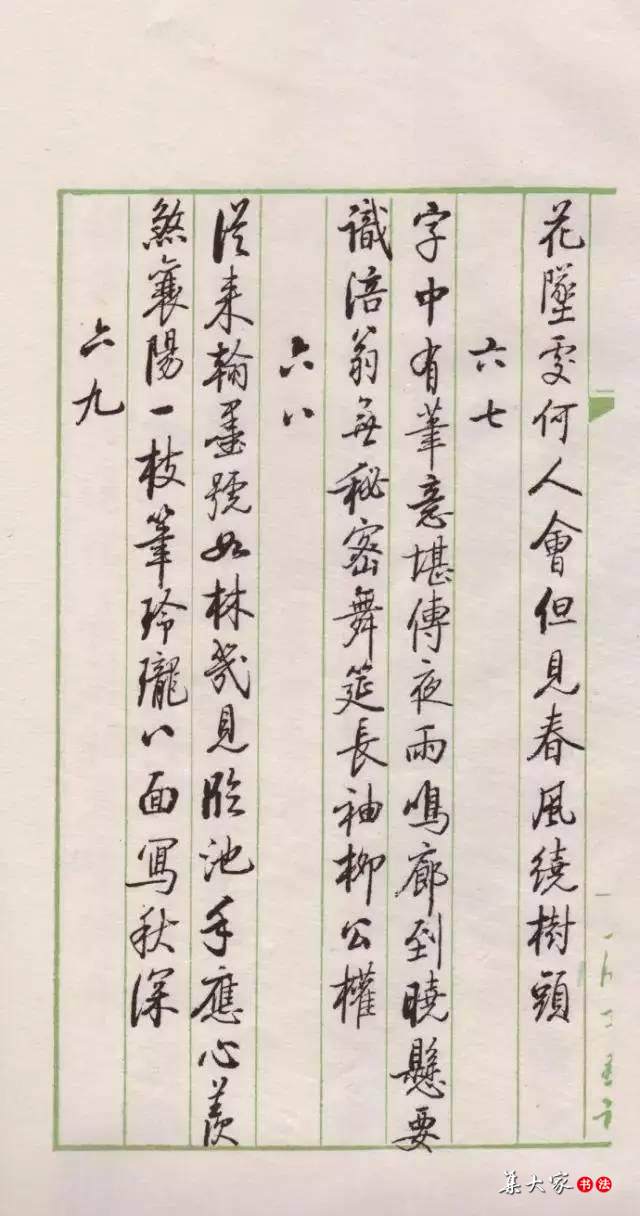 花墜處何人會但見春風繞樹頭
六七
字中有筆意堪傳夜雨鳴廊到曉懸要
識涪翁無秘密舞筵長袖柳公權
六八
從來翰墨號如林幾見臨池手應心羨
煞襄陽一枝筆玲瓏八面寫秋深
六九
集大家書法